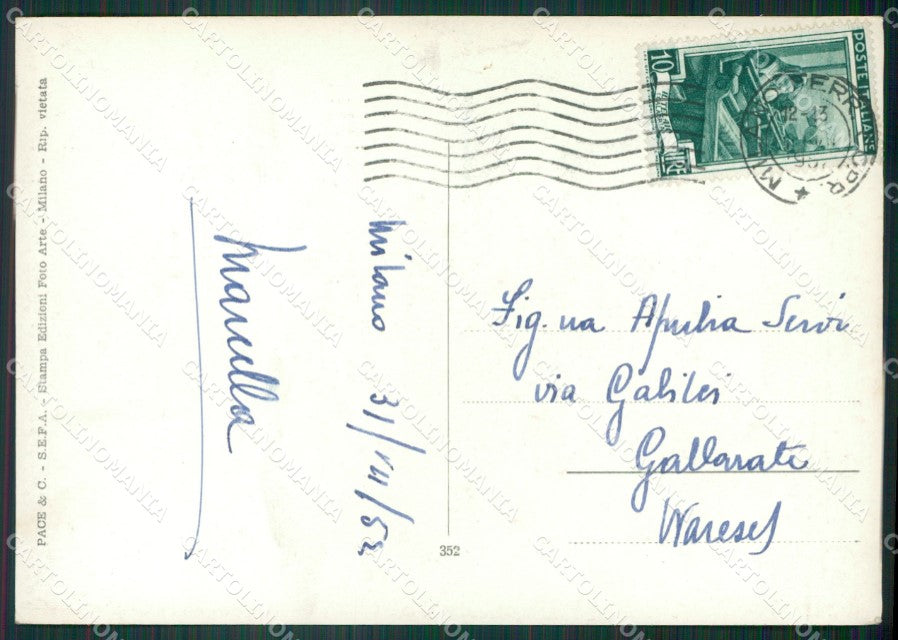 PACE & C. - S.E.F.A. - Stampa Edizioni Foto Arte - Milano - Rip. vietata
Marcella
Milano 31/VII/53
352
POSTE ITALIANE
10
LIRE
12-13
Sig.na Apulia Servi
via Galilei
Gallarate
(Varese)
CARTOLINOMANIA